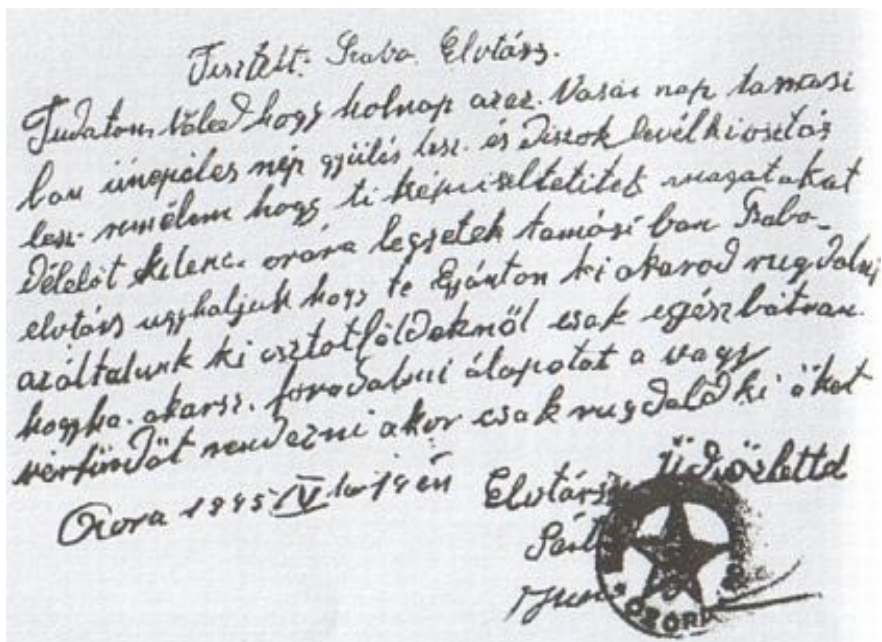 Tisztelt: Szabo. Elvtárs.
Tudatom, Véled hogy holnap azaz. Vasár nap tamasi
ban ünepéles nép gyülés lesz. és Diszok levélkiosztás
lesz. remélem hogy ti képviseltetitek magatakat
Délelöt kilenc. orára legyetek tamási ban Szabo-
elvtárs ugyhaljuk hogy te ki akarod rugdalni
azáltalunk ki osztotföldeknöl csak egészbátran.
hogyha. akarsz. foradalmi álapotat a vagy
vérfürdöt rendezni akor csak rugdald ki öket
Ozora 1945 IV hó 14 én
Elvtársi Üdvözlettel
OZORA